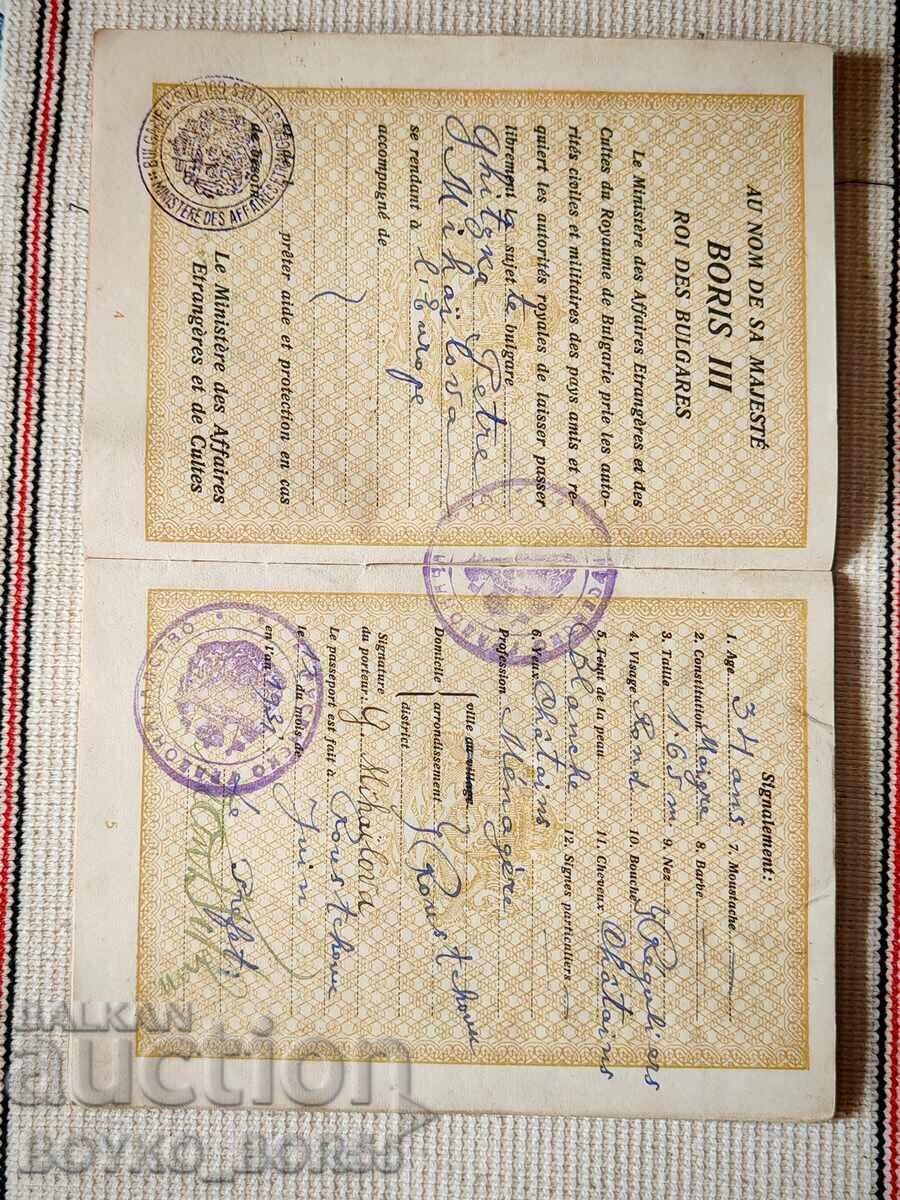 AU NOM DE SA MAJESTÉ
BORIS III
ROI DES BULGARES
Le Ministère des Affaires Etrangères et des
Cultes du Royaume de Bulgarie prie les auto-
rités civiles et militaires des pays amis et re-
quiert les autorités royales de laisser passer
librement la sujette bulgare
Ghitzka Petre
G. Mihaïlova
se rendant à l'Europe
accompagné de
prêter aide et protection en cas
de besoin.
Le Ministère des Affaires
Etrangères et de Cultes
MINISTÈRE DES AFFAIRES
4
Signalement:
1. Age 34 ans 7. Moustache —
2. Constitution Maigre 8. Barbe —
3. Taille 1·65 m 9. Nez Réguliers
4. Visage Rond 10. Bouche
5. Teint de la peau 11. Cheveux Châtains
Blanche
6. Yeux Châtains 12. Signes particuliers —
Profession Ménagère
Domicile ville ou village
arrondissement Roustchouk
district
Signature
du porteur: G. Mihailova
Le passeport est fait à Roustchouk
le du mois de Juin
en l'an 1931
Le Préfet:
5
BALKAN
auction
BOYKO_BOR58